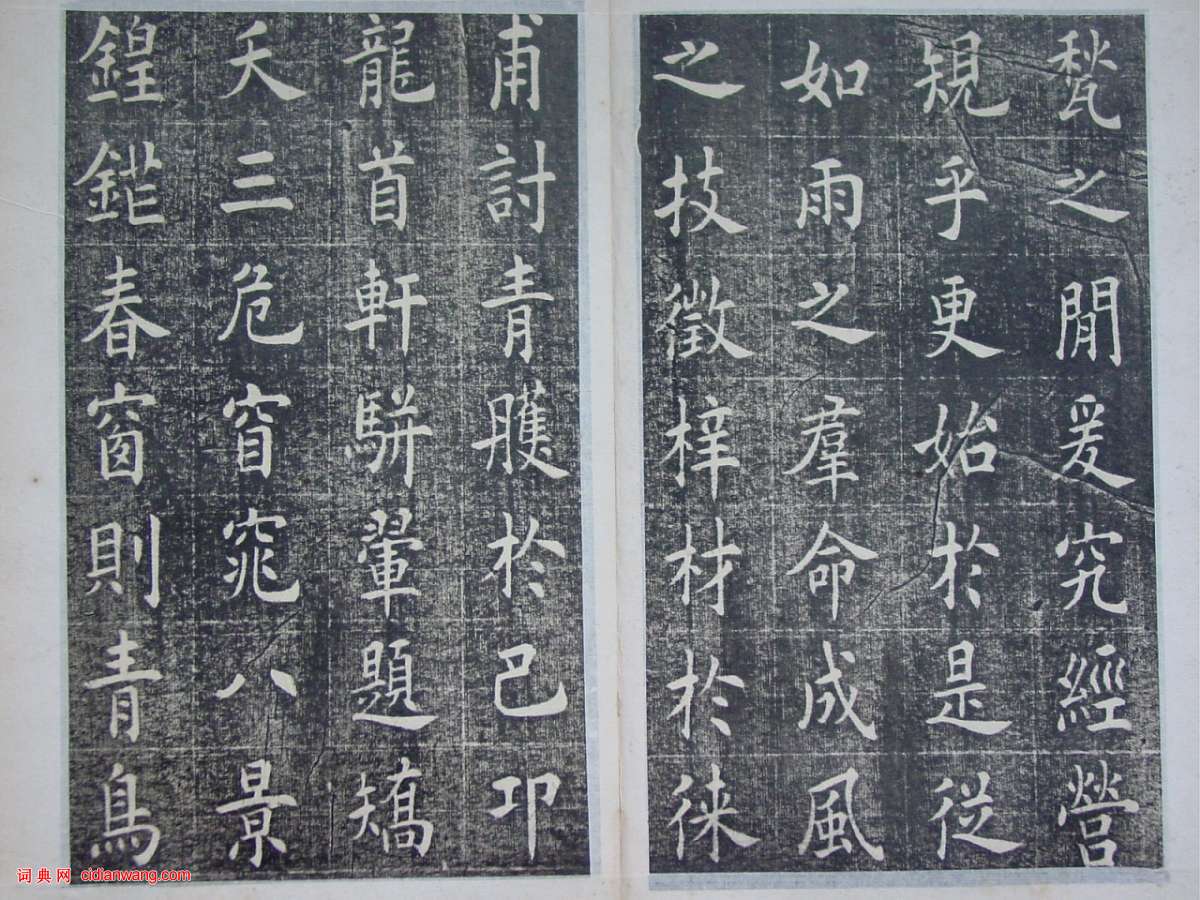 甃之閒爰究經營
規乎更始於是從
如雨之羣命成風
之技徵梓材於徠
甫討青雘於巴卭
龍首軒駢翬題矯
天三危窅窕八景
鍠鋩春窗則青鳥
词典网 cidianwang.com